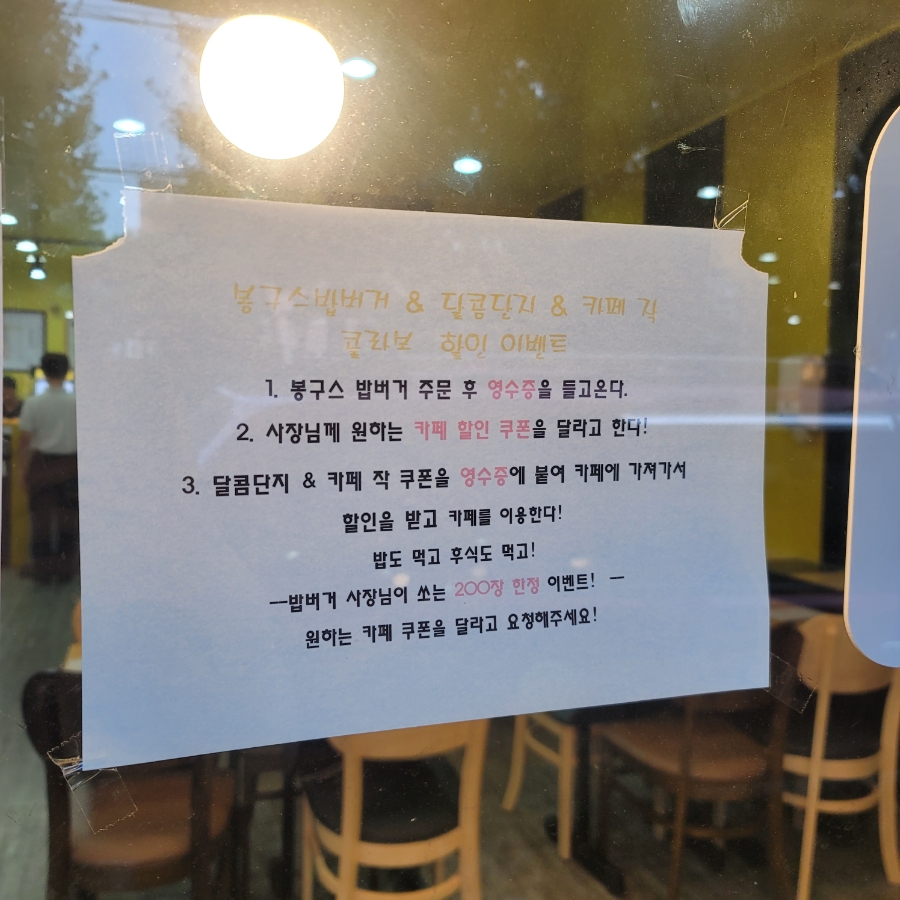 봉구스밥버거 & 달콤단지 & 카페 작
콜라보 할인 이벤트
1. 봉구스 밥버거 주문 후 영수증을 들고온다.
2. 사장님께 원하는 카페 할인 쿠폰을 달라고 한다!
3. 달콤단지 & 카페 작 쿠폰을 영수증에 붙여 카페에 가져가서
할인을 받고 카페를 이용한다!
밥도 먹고 후식도 먹고!
—밥버거 사장님이 쏘는 200장 한정 이벤트! —
원하는 카페 쿠폰을 달라고 요청해주세요!